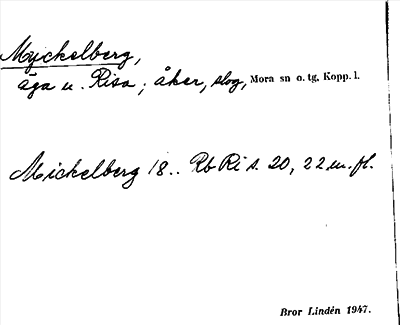 Myckelberg,
äga u. Risa; åker, slog, Mora sn o. tg, Kopp. l.
Mickelberg 18.. Rb Ri s. 20, 22 m. fl.
Bror Lindén 1947.